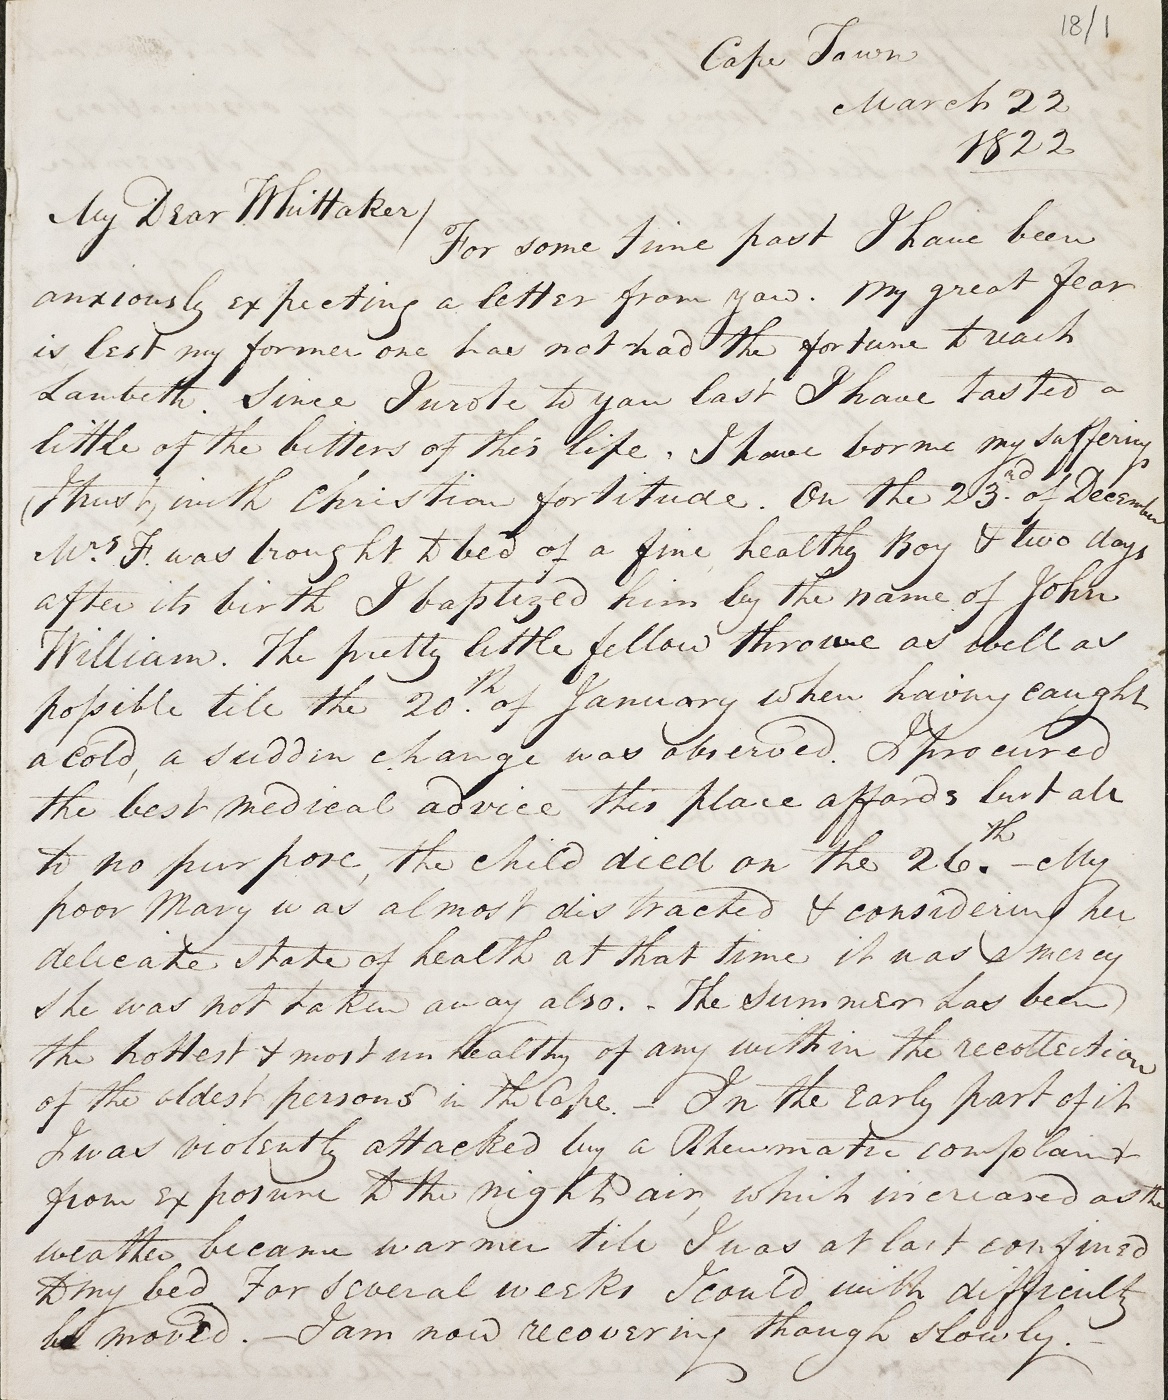 18/1
Cape Town
March 22
1822
My Dear Whittaker/
For some time past I have been
anxiously expecting a letter from you. My great fear
is lest my former one has not had the fortune to reach
Lambeth. Since I wrote to you last I have tasted a
little of the bitters of this life. I have borne my sufferings
(I trust) with Christian fortitude. On the 23.rd of December
Mrs F. was brought to bed of a fine healthy Boy & two days
after its birth I baptized him by the name of John
William. The pretty little fellow throve as well as
possible till the 20.th of January when having caught
a cold, a sudden change was observed. I procured
the best medical advice this place affords but all
to no purpose, the child died on the 26.th – My
poor Mary was almost distracted & considering her
delicate state of health at that time it was a mercy
she was not taken away also. - The Summer has been
the hottest & most unhealthy of any within the recollection
of the oldest persons in the Cape. – In the early part of it
I was violently attacked by a Rheumatic complaint
from exposure to the night air, which increased as the
weather became warmer till I was at last confined
to my bed For several weeks I could with difficulty
be moved. – I am now recovering though slowly. –